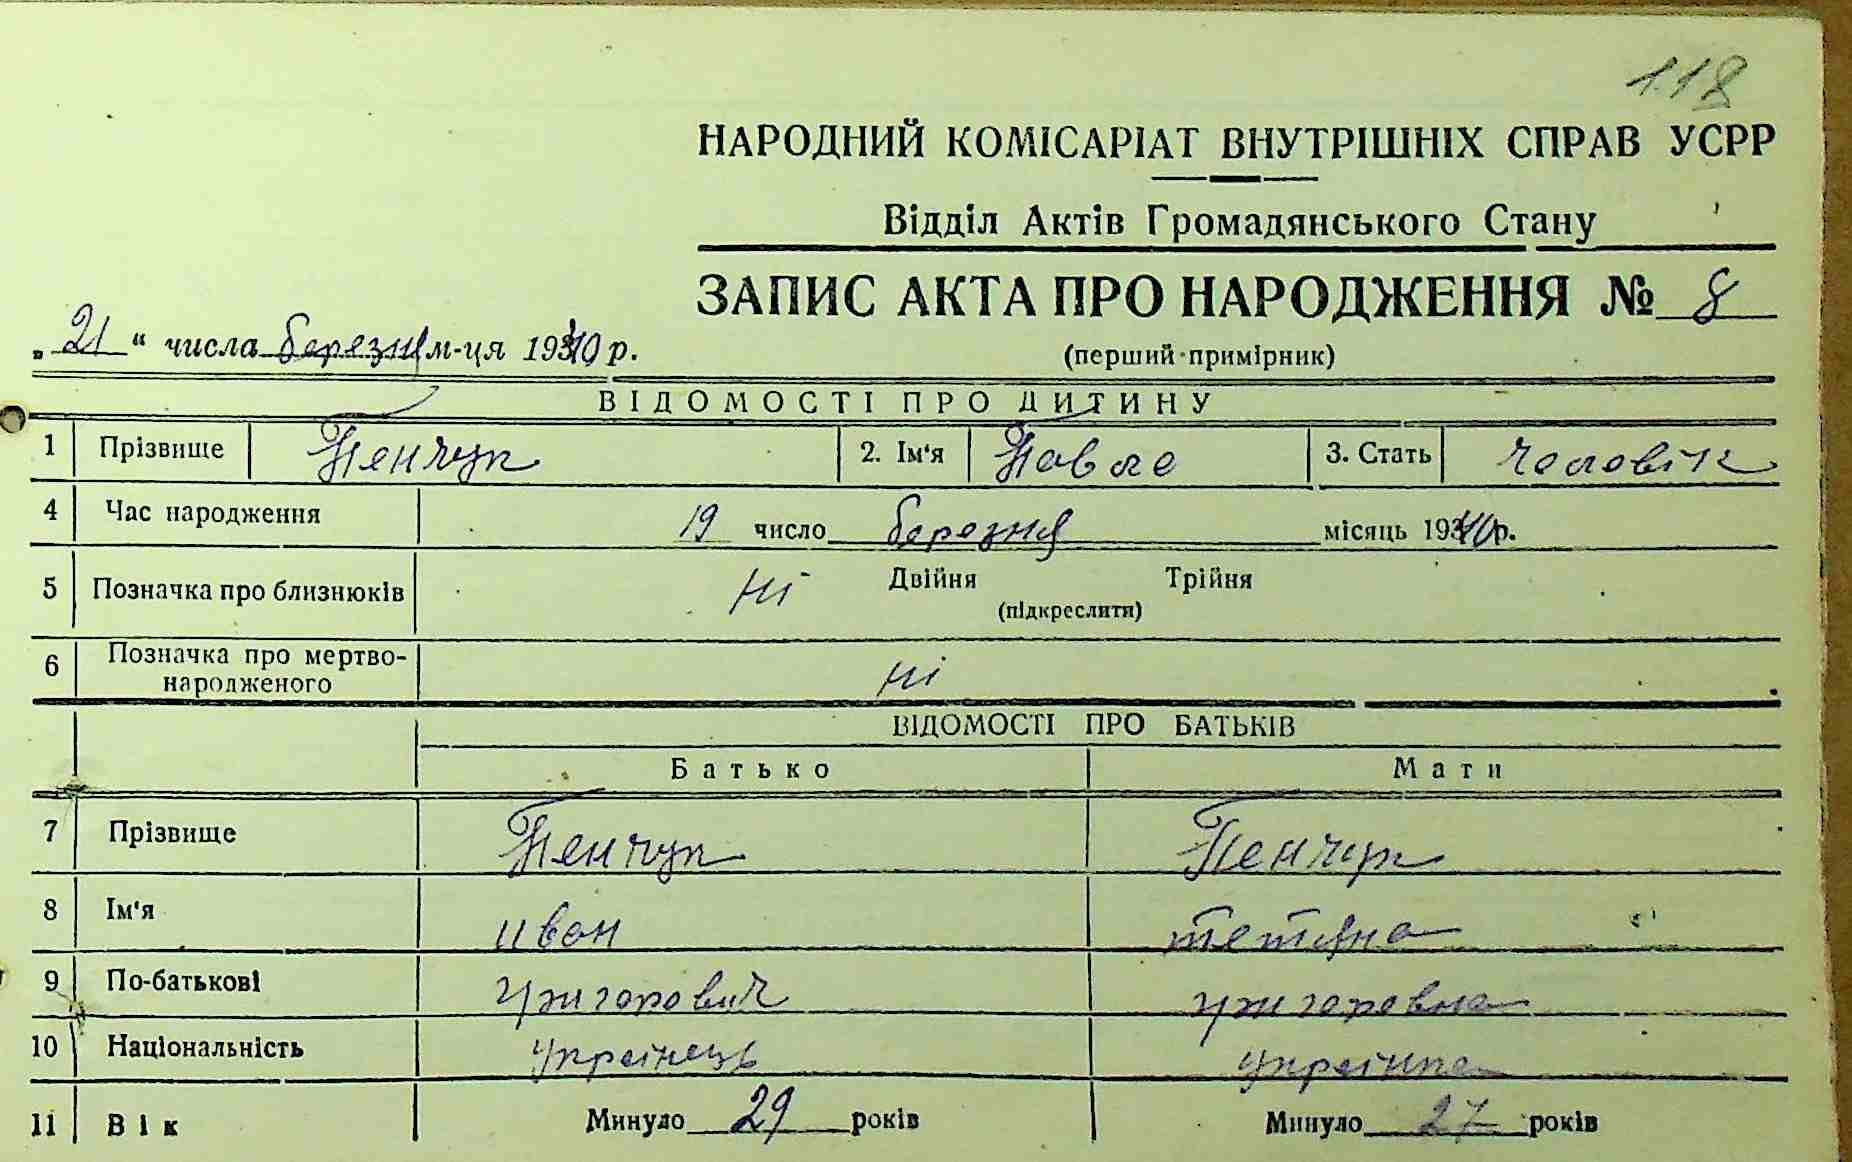 118
НАРОДНИЙ КОМІСАРІАТ ВНУТРІШНІХ СПРАВ УСРР
Відділ Актів Громадянського Стану
ЗАПИС АКТА ПРО НАРОДЖЕННЯ № 8
„21“ числа березня м-ця 1940 р.
(перший примірник)
ВІДОМОСТІ ПРО ДИТИНУ
1 Прізвище Пенчук 2. Ім'я Павло 3. Стать чоловік
4 Час народження 19 число березня місяць 1940 р.
5 Позначка про близнюків ні Двійня Трійня
(підкреслити)
6 Позначка про мертво-
народженого ні
ВІДОМОСТІ ПРО БАТЬКІВ
Батько Мати
7 Прізвище Пенчук Пенчук
8 Ім'я иван тетяна
9 По-батькові григорович григоровна
10 Національність українець українка
11 Вік Минуло 29 років Минуло 27 років